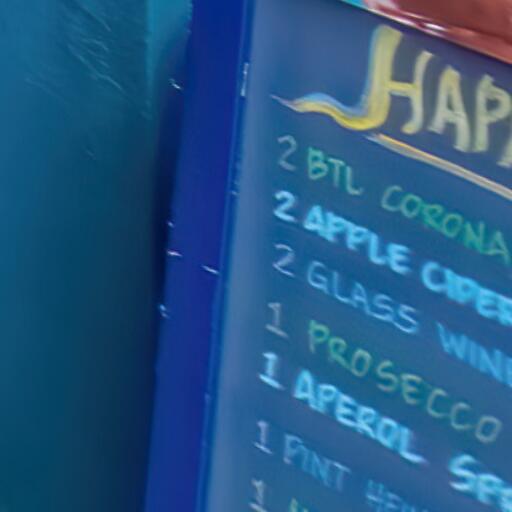 HAP
2 BTL CORONA
2 APPLE CIDER
2 GLASS WINE
1 PROSECCO
1 APEROL SP
1 PINT
1